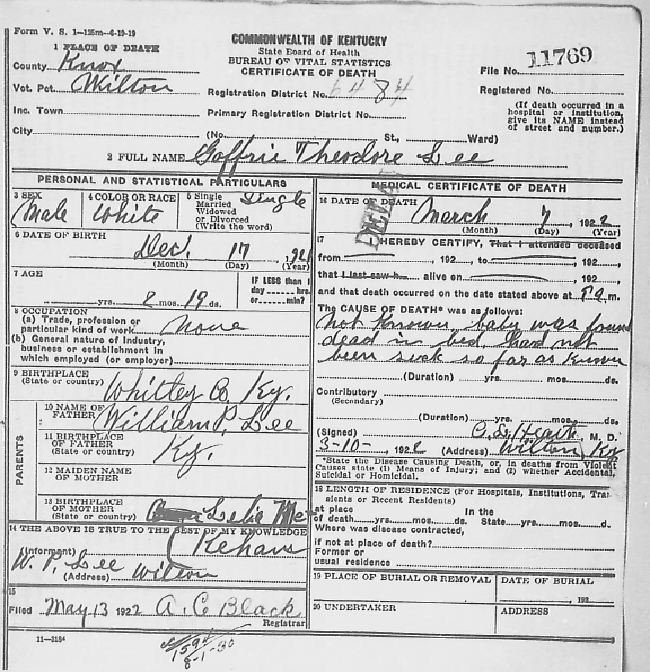 Form V. S. 1—125m—6-19-19
1 PLACE OF DEATH
County Knox
Vot. Pct. Wilton
Inc. Town
City
COMMONWEALTH OF KENTUCKY
State Board of Health
BUREAU OF VITAL STATISTICS
CERTIFICATE OF DEATH
Registration District No. 6484
Primary Registration District No.
(No. St., Ward)
File No. 11769
Registered No.
(If death occurred in a
hospital or institution,
give its NAME instead
of street and number.)
2 FULL NAME Goffrie Theodore Lee
PERSONAL AND STATISTICAL PARTICULARS
3 SEX
Male
4 COLOR OR RACE
White
5 Single
Married
Widowed
or Divorced
(Write the word)
Single
6 DATE OF BIRTH
Dec. 17, 1921
(Month) (Day) (Year)
7 AGE
yrs. 2 mos. 19 ds.
IF LESS than 1
day hrs.
or min?
8 OCCUPATION
(a) Trade, profession or
particular kind of work None
(b) General nature of industry,
business or establishment in
which employed (or employer)
9 BIRTHPLACE
(State or country) Whitley Co. Ky.
PARENTS
10 NAME OF
FATHER William P. Lee
11 BIRTHPLACE
OF FATHER
(State or country) Ky.
12 MAIDEN NAME
OF MOTHER
13 BIRTHPLACE
OF MOTHER
(State or country) Lelia Mc
14 THE ABOVE IS TRUE TO THE BEST OF MY KNOWLEDGE
(Informant) W. P. Lee
(Address) Wilton
15
Filed May 13 1922 A. C. Black
Registrar
11—3184
MEDICAL CERTIFICATE OF DEATH
16 DATE OF DEATH
March 7, 1922
(Month) (Day) (Year)
17 I HEREBY CERTIFY, That I attended deceased
from , 192 , to , 192 ,
that I last saw h alive on , 192 ,
and that death occurred on the date stated above at 8 a m.
The CAUSE OF DEATH* was as follows:
not known baby was found
dead in bed had not
been sick so far as known
(Duration) yrs. mos. ds.
Contributory
(Secondary)
(Duration) yrs. mos. ds.
(Signed) M. D.
3-10-, 1922 (Address) Wilton Ky
*State the Disease Causing Death, or, in deaths from Violent
Causes state (1) Means of Injury; and (2) whether Accidental,
Suicidal or Homicidal.
18 LENGTH OF RESIDENCE (For Hospitals, Institutions, Tran-
sients or Recent Residents)
at place In the
of death yrs. mos. ds. State yrs. mos. d
Where was disease contracted,
if not at place of death?
Former or
usual residence
19 PLACE OF BURIAL OR REMOVAL DATE OF BURIAL
192
20 UNDERTAKER ADDRESS